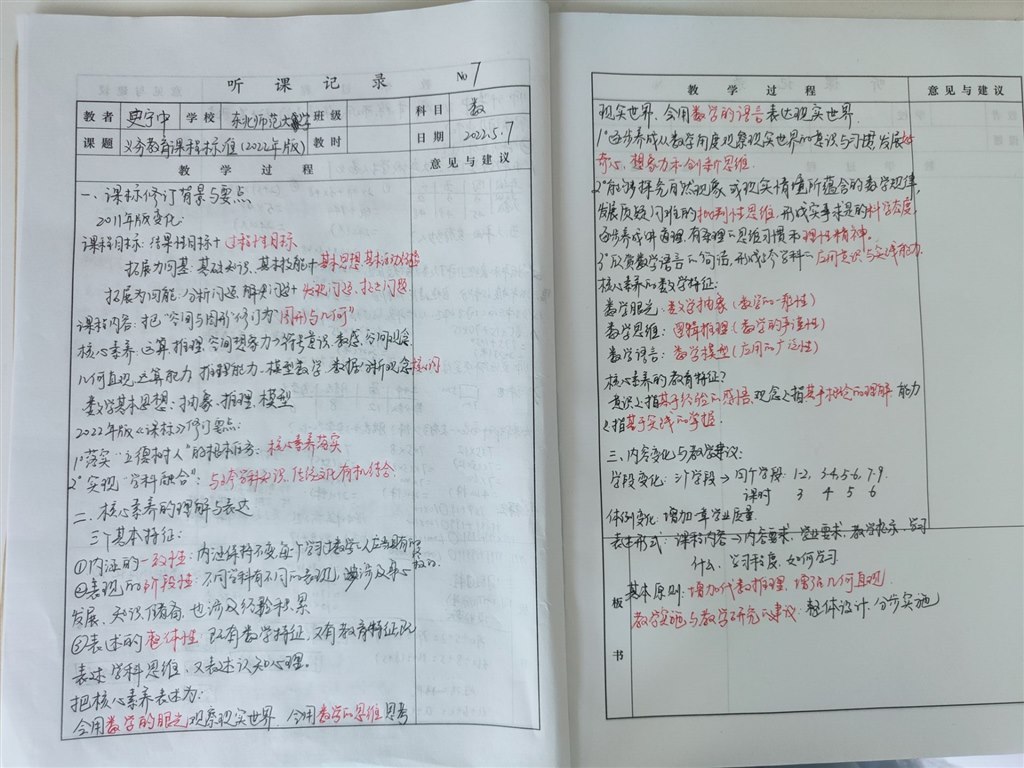 听课记录 No 7
教者 史宁中 学校 东北师范大学 班级 科目 数
课题 义务教育课程标准(2022年版) 教时 日期 2022.5.7
教学过程 意见与建议
一、课标修订背景与要点
2011年版变化:
课程目标:结果性目标+过程性目标
拓展为四基:基础知识、基本技能+基本思想、基本活动经验
拓展为四能:分析问题、解决问题+发现问题、提出问题.
课程内容:把"空间与图形"修订为"图形与几何"
核心素养:运算、推理、空间想象力→符号意识、数感、空间观念
几何直观、运算能力、推理能力、模型数学、数据分析观念
数学基本思想:抽象、推理、模型
2022年版《课标》修订要点:
1°落实"立德树人"的根本任务:核心素养落实
2°实现"学科融合":与各学科知识、传统文化有机结合.
二、核心素养的理解与表达
三个基本特征:
①内涵的一致性:内涵保持不变,每个学习过数学的人应当具有的
②表现的阶段性:不同学科有不同的表现,涉及身心
发展、知识储备,也涉及经验积累
③表述的整体性:既有数学特征,又有教育特征,既
表述学科思维,又表述认知心理。
把核心素养表述为:
会用数学的眼光观察现实世界,会用数学的思维思考
教学过程 意见与建议
现实世界,会用数学的语言表达现实世界.
1°逐步养成从数学角度观察现实世界的意识与习惯,发展好
奇心、想象力和创新思维.
2°能够探究自然现象或现实情境所蕴含的数学规律,
发展质疑问难的批判性思维,形成实事求是的科学态度,
逐步养成讲道理、有条理的思维习惯和理性精神.
3°欣赏数学语言的简洁,形成跨学科的应用意识与实践能力.
核心素养的数学特征:
数学眼光:数学抽象(数学的一般性)
数学思维:逻辑推理(数学的严谨性)
数学语言:数学模型(应用的广泛性)
核心素养的教育特征?
意识是指基于经验的感悟,观念是指基于概念的理解 能力
是指基于实践的掌握.
三、内容变化与教学建议:
学段变化:三个学段→四个学段:1-2, 3-4, 5-6, 7-9.
课时 3 4 5 6
体例变化:增加一章学业质量.
表述形式:课程内容→内容要求、学业要求、教学提示、学习
什么、学习程度、如何学习
基本原则:增加代数推理,增强几何直观
教学实施与教学研究的建议:整体设计,分步实施
板书